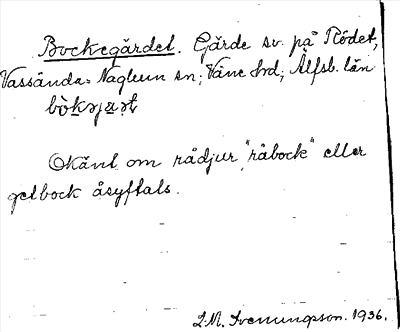 Bockegärdet. Gärde sv. på Rödet,
Vassända-Naglum sn; Väne hrd; Älfsb. län
Okänt om rådjur "råbock" eller
getbock åsyftats.
1936.